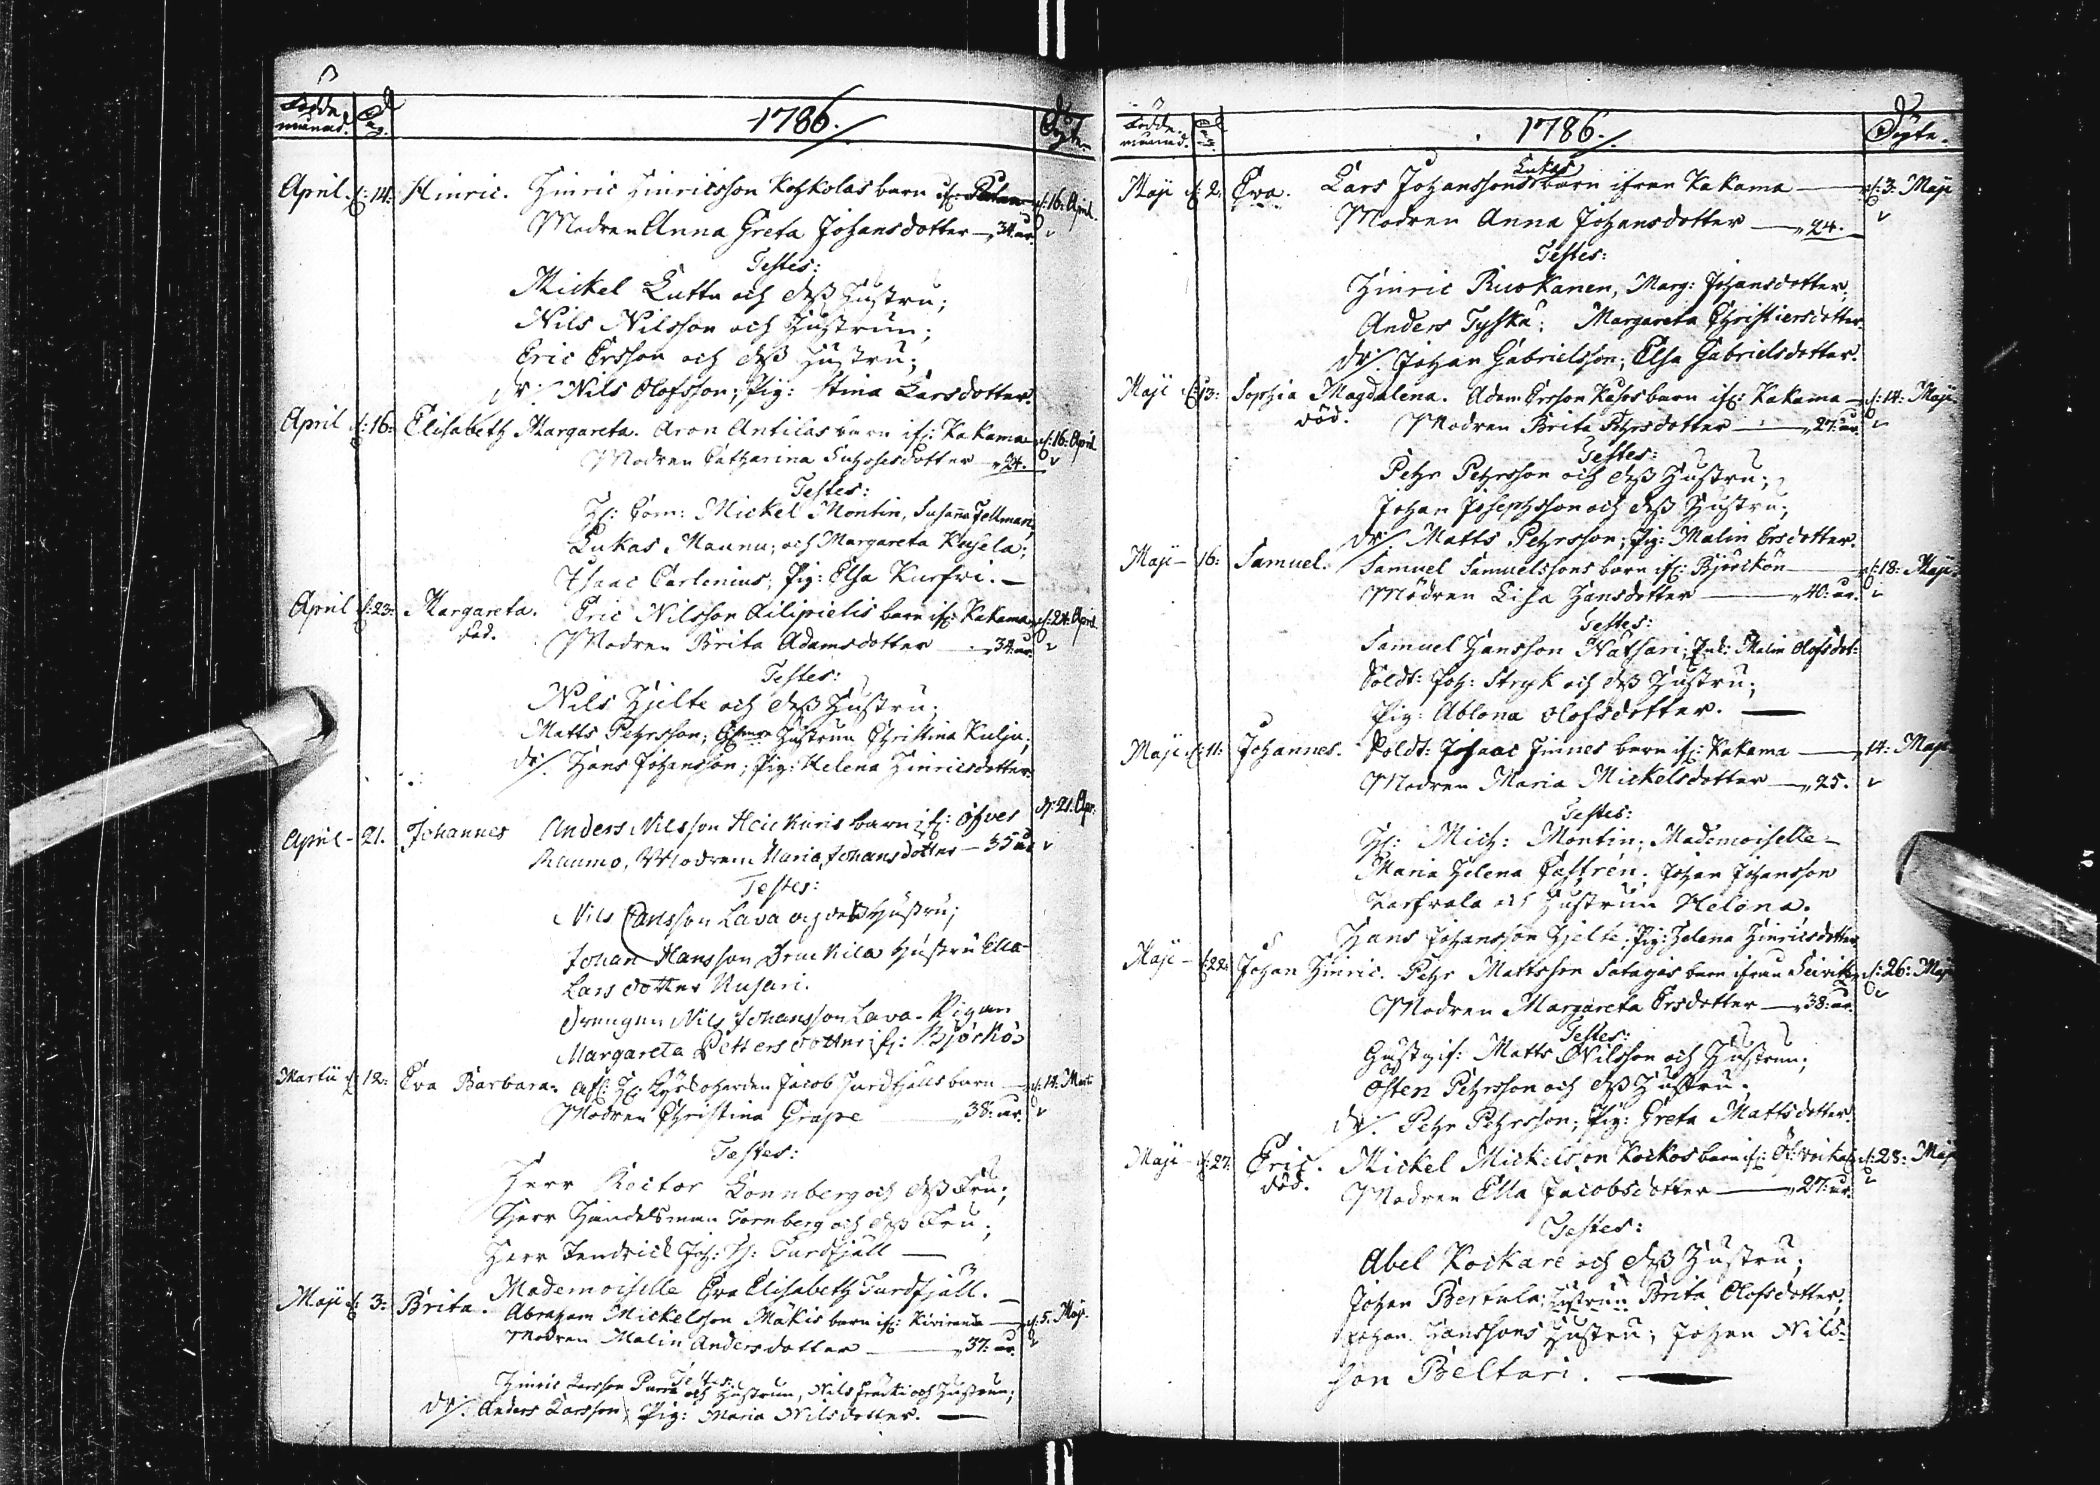 Födde månad. Dag. 1786. Döpte.
April. d: 14: Hinric. Hinric Hinricsson Koskolas barn if: d: 16: April.
Modren Anna Greta Johansdotter — 34. år.
Testes:
Mickel Lutta och dess Hustru;
Nils Nilsson och Hustrun;
Eric Ersson och dess Hustru;
dr: Nils Olofsson; Pig: Stina Larsdotter.
April d: 16: Elisabeth Margareta. Aron Antilas barn if: Kakama d: 16: April
Modren Catharina — 24.
Testes:
H: Com: Mickel Montin, Susanna Fellman,
Lukas Maunu; och Margareta Kusela;
Isaac Carlenius; Pig: Elsa Kurfvi. —
April d: 23: Margareta. Eric Nilsson Filipietis barn if: Kakama d: 24: April
död. Modren Brita Adamsdotter — 34: år.
Testes:
Nils Hjelte och dess Hustru;
Matts Pehrsson; Hustrun Christina Kulju;
dr: Hans Johansson; Pig: Helena Hinricsdotter
April - 21. Johannes Anders Nilsson Heickuris barn if: Öfver d: 21. Apr:
Raumo, Modren Maria Johansdotter — 35 år
Testes:
Nils Larsson Lava och dess Hustru;
Johan Hansson Hustru Ella
Larsdotter Nusari.
Drengen Nils Johansson Lava - Pigan
Margareta Pettersdotter if: Björkö
Martii d: 12: Eva Barbara. Afl: H: Kyrkoherden Jacob Turdfjälls barn — d: 14. Martii
Modren Christina Grape — 38: år.
Testes:
Herr Rector Lonnberg och dess Fru;
Herr Handelsman Tornberg och dess Fru;
Herr Joh: H: Turdfjäll —
Mademoiselle Eva Elisabeth Turdfjäll. —
Maji d: 3: Brita. Abraham Mickelsson Mäkis barn if: Kiviranda — d: 5. Maji.
Modren Malin Andersdotter — 37: år.
Testes:
Hinric Larsson och Hustrun, Nils och Hustrun;
dr: Anders Larsson; Pig: Maria Nilsdotter. —
Födde månad. Dag. 1786. Döpte.
Maji d: 2: Eva. Lars Johanssons Lukas barn ifrån Kakama — d: 3: Maji
Modren Anna Johansdotter — 24.
Testes:
Hinric Ruokanen, Marg: Johansdotter;
Anders Tyska; Margareta Christiersdotter
dr: Johan Gabrielsson; Elsa Gabrielsdotter.
Maji d: 13: Sophia Magdalena. Adam Ersson Kuhos barn if: Kakama — d: 14: Maji
död. Modren Brita Pehrsdotter — 27: år.
Testes:
Pehr Pehrsson och dess Hustru;
Johan Josephsson och dess Hustru;
dr: Matts Pehrsson; Pig: Malin Ersdotter.
Maji - 16: Samuel. Samuel Samuelssons barn if: Björckön — d: 18: Maji
Modren Lisa Hansdotter — 40: år.
Testes:
Samuel Hansson Nathari; Enk: Malin Olofsdot:
Soldt: Joh: Stryk och dess Hustru;
Pig: Ablona Olofsdotter. —
Maji d: 11: Johannes. Soldt: Isaac Finnes barn if: Kakama — 14: Maji
Modren Maria Mickelsdotter — 25.
Testes:
H: Mich: Montin; Mademoiselle
Maria Helena Castrén. Johan Johansson
och Hustrun Helena.
Hans Johansson Hjelte; Pig: Helena Hinricsdotter
Maji - d: 22: Johan Hinric. Pehr Mattsson barn ifrån d: 26: Maji
Modren Margareta Ersdotter — 38: år.
Testes:
Gästgif: Matts Nilsson och Hustrun;
Östen Pehrsson och dess Hustru.
dr: Pehr Pehrsson; Pig: Greta Mattsdotter
Maji - d: 27: Eric. Mickel Mickelsson Koikos barn if: d: 28: Maji
död. Modren Ella Jacobsdotter — 27: år.
Testes:
Abel Kockare och dess Hustru;
Johan Bertula; Hustrun Brita Olofsdotter;
Johan Hanssons Hustru; Johan Nils-
son Beltari. —